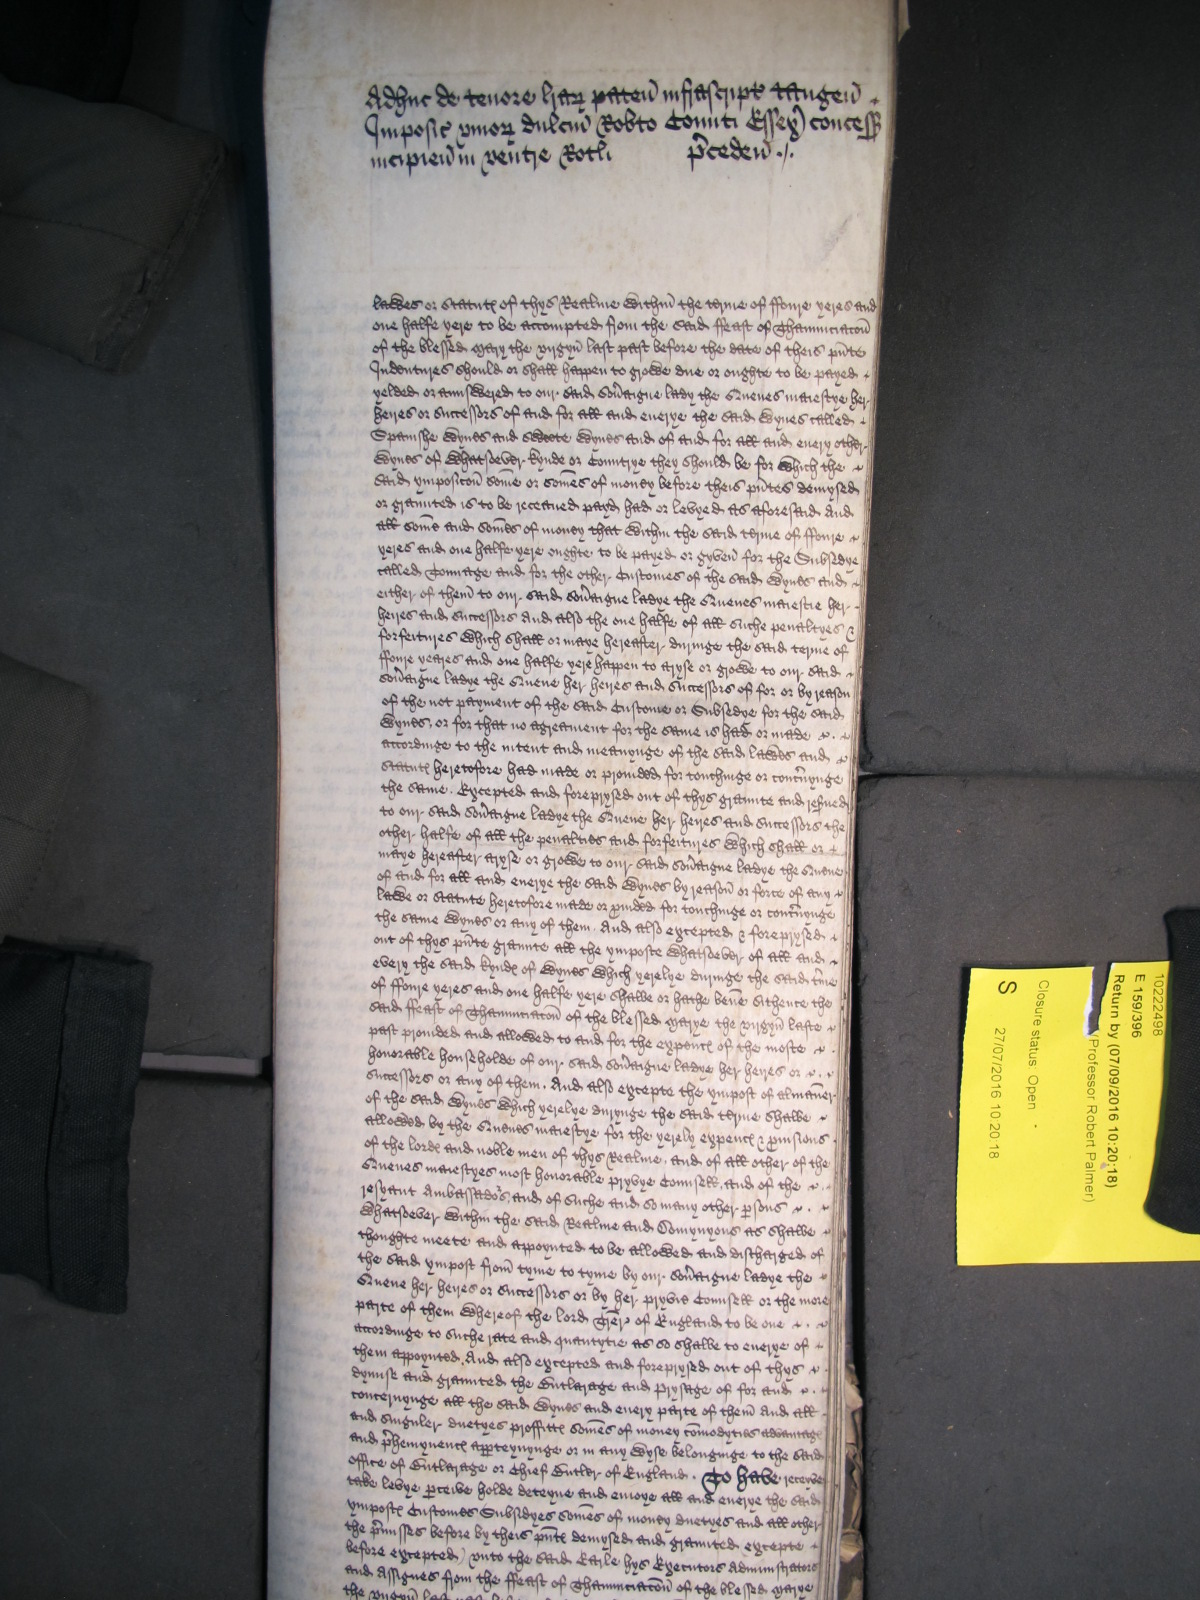 Adhuc de tenore lrarꝝ patenꝭ infrascript tangenꝭ
Imposic vinorꝝ dulciu Robto Comiti Essex concess
incipien in ventre Rotli p̄ceden ./.
lawes or statutꝭ of thys Realme within the terme of ffoure yeres and
one halfe yere to be accompted from the said ffeast of Thannunciacon
of the blessed Mary the virgyn last past before the date of theis pn̄te
Indentures should or shall happen to growe due or oughte to be payed
yelded or aunswered to our said sov̄aigne lady the Quenes maiestye her
heires or successors of and for all and euerye the said wynes called
Spanishe wynes and sweete wynes and of and for all and euery other
wynes of whatsoever kynde or Countrye they should be for which the
said ymposicon som̄e or som̄es of money before theis pn̄tes demysed
or graunted is to be receaued payd had or levyed as aforesaid And
all som̄e and som̄es of money that within the said terme of ffoure
yeres and one halfe yere oughte to be payed or gyven for the Subsedye
called Tonnage and for the other Customes of the said wynes and
either of them to our said sov̄aigne ladye the Quenes maiestie her
heires and successors And also the one halfe of all suche penaltyes &
forfeitures which shall or maye hereafter duringe the said terme of
ffoure yeares and one halfe yere happen to aryse or growe to our said
sov̄aigne ladye the Quene her heires and successors of for or by reason
of the not payment of the said Custome or Subsedye for the said
wynes, or for that no agreament for the same is had or made
accordinge to the intent and meanynge of the said lawes and
statutꝭ heretofore had made or provided for touchinge or concˉnynge
the same. Excepted and foreprysed out of thys graunte and resˉued
to our said sov̄aigne ladye the Quene her heires and successors the
other halfe of all the penalties and forfeitures which shall or
maye hereafter aryse or growe to our said sov̄aigne ladye the Quene
of and for all and euerye the said wynes by reason or force of any
lawe or statute heretofore made or p̱vided for touchinge or concˉnynge
the same wynes or any of them. And also excepted & foreprysed
out of thys pn̄te graunte all the ymposte whatsoever of all and
every the said kyndꝭ of wynes which yerelye duringe the said tˉme
of ffoure yeres and one halfe yere shalbe or hathe bene sithence the
said ffeast of Thannunciacon of the blessed Marye the virgyn laste
past provided and allowed to and for the expencꝭ of the moste
honorable householde of our said sov̄aigne ladye her heires or
successors or any of them. And also excepte the ympost of almanner
of the said wynes which yerelye durynge the said terme shalbe
allowed by the Quenes maiestye for the yerely expencꝭ & p̱visions
of the lordꝭ and noble men of thys Realme, and of all other of the
Quenes maiestyes most honorable pryvye Counsell, and of the
resyant Ambassadors, and of suche and so many other ꝑsons
whatsoever within the said Realme and Domynyons as shalbe
thoughte meete and appoynted to be allowed and discharged of
the said ympost from tyme to tyme by our sov̄aigne ladye the
Quene her heires or successors or by her pryvie Counsell or the more
parte of them whereof the lord Tre͠r of England to be one
accordinge to suche rate and quantytie as so shalbe to euerye of
them appoynted. And also excepted and foreprysed out of thys
dymise and graunted the Butlarage and prysage of for and
concernynge all the said wynes and euery parte of them And all
and singuler duetyes proffittꝭ som̄es of money com̄odyties advantagꝭ
and p̄hemynencꝭ apperteynynge or in any wyse belonginge to the said
office of Butlarage or Chief Butler of England. To have receive
take levye ꝑceive holde deteyne and enioye all and euerye the said
ympostꝭ Customes Subsidyes som̄es of money duetyes and all other
the p̄misses before by theis pn̄tꝭ demysed and graunted excepte
before excepted) vnto the said Earle hys Executors Administrators
and Assignes from the ffeast of Thannunciacon of the blessed Marye
the virgyn last
10222498
E 159/396
Return by (07/09/2016 10:20:18)
(Professor Robert Palmer)
Closure status: Open
27/07/2016 10:20:18
S